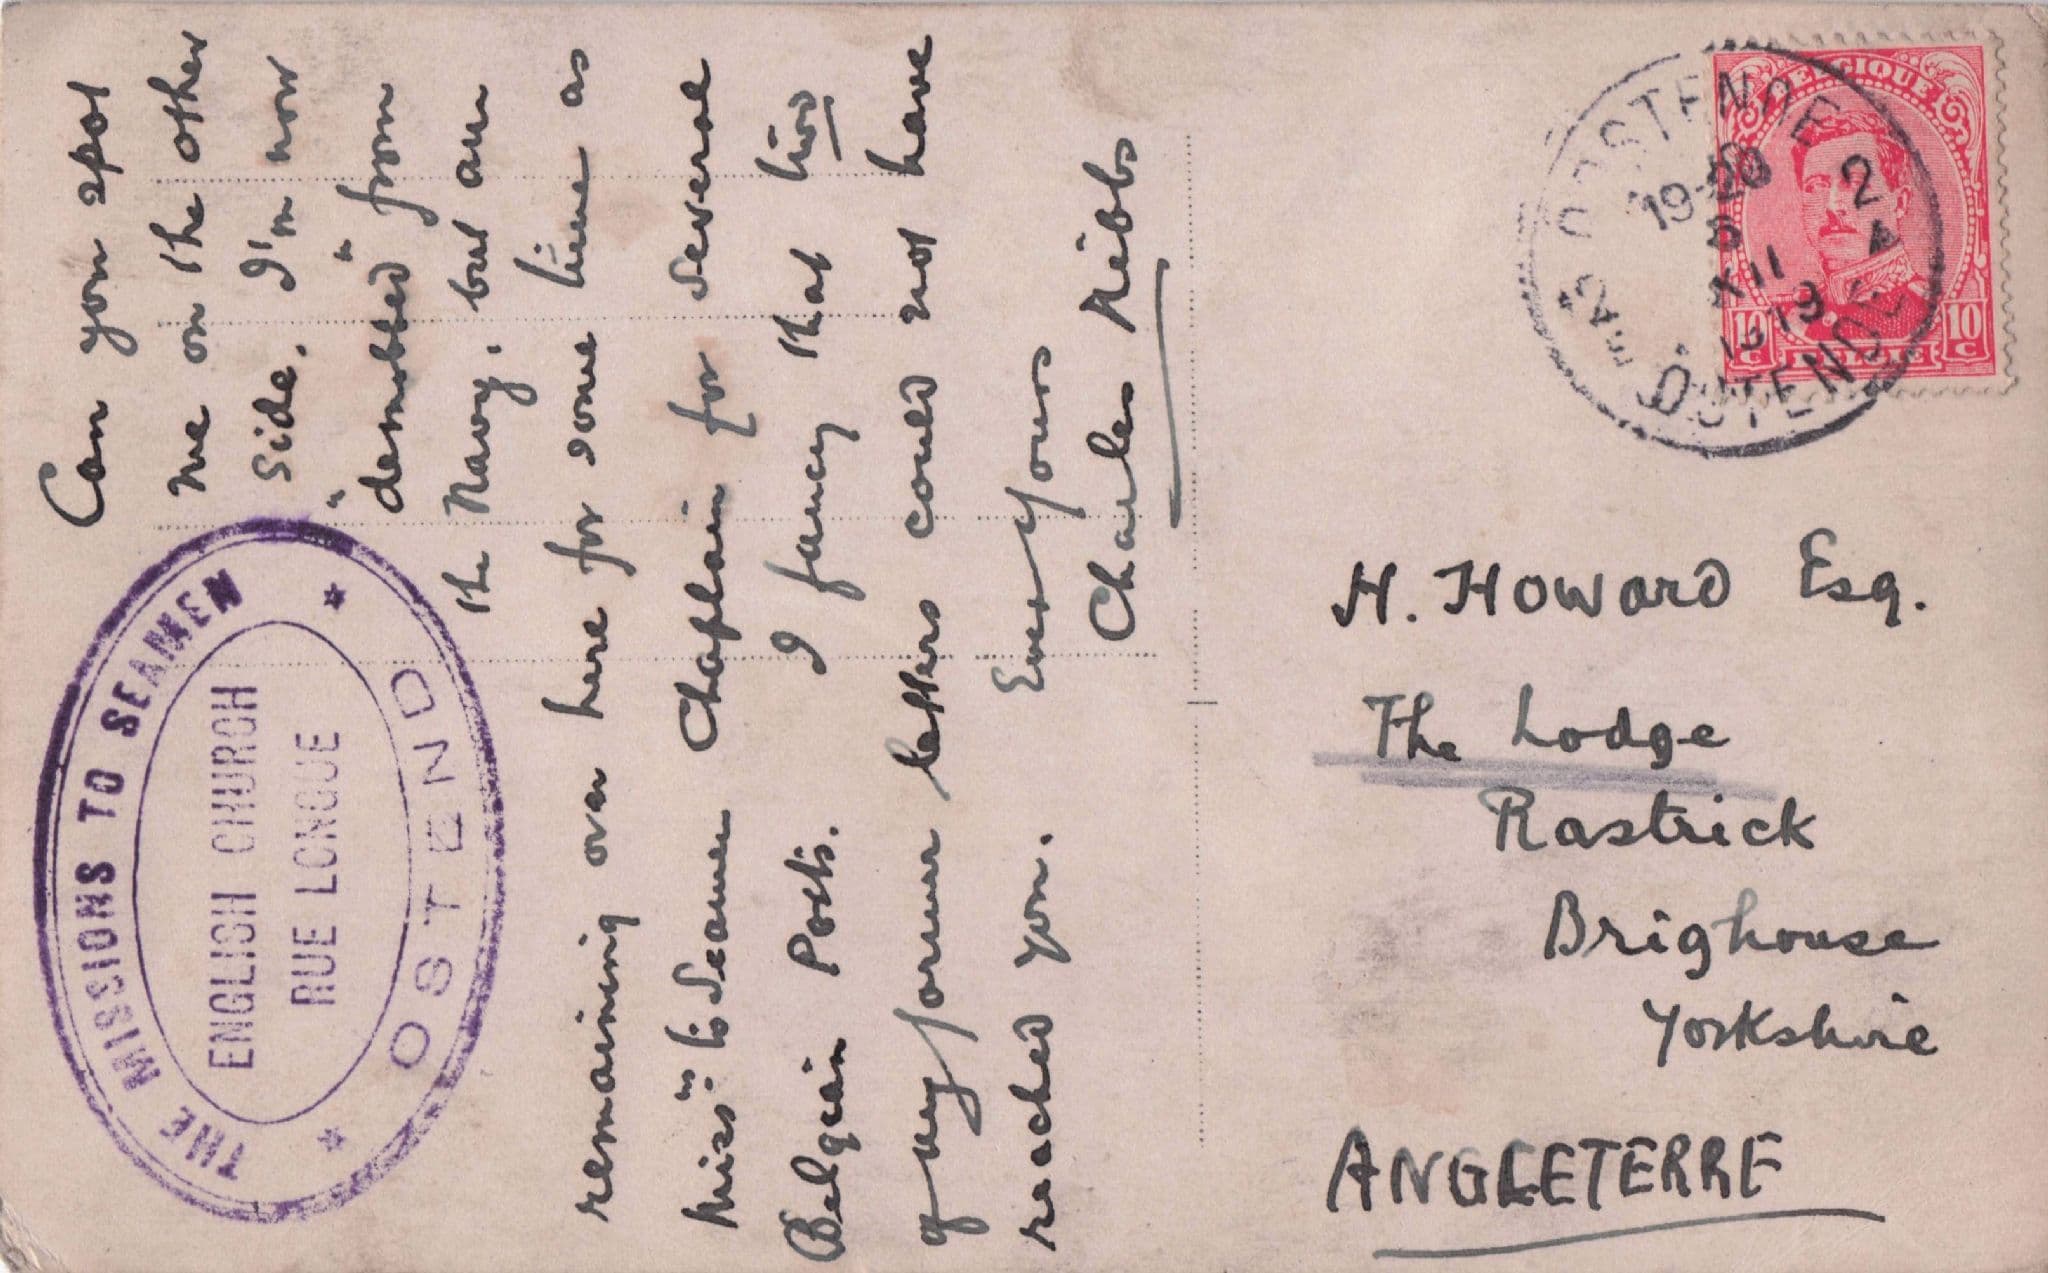 Can you spot
me on the other
side. I'm now
"demobbed" from
the Navy, but am
remaining over here for some time as
Miss:ns to Seamen Chaplain for several
Belgian Ports. I fancy that two
of my former letters could not have
reached you. Ever yours
Charles
THE MISSIONS TO SEAMEN
ENGLISH CHURCH
RUE LONGUE
OSTEND
BELGIQUE
10 C
10 C
BELGIE
OOSTENDE
19-20
XII
OSTENDE
H. Howard Esq.
The Lodge
Rastrick
Brighouse
Yorkshire
ANGLETERRE